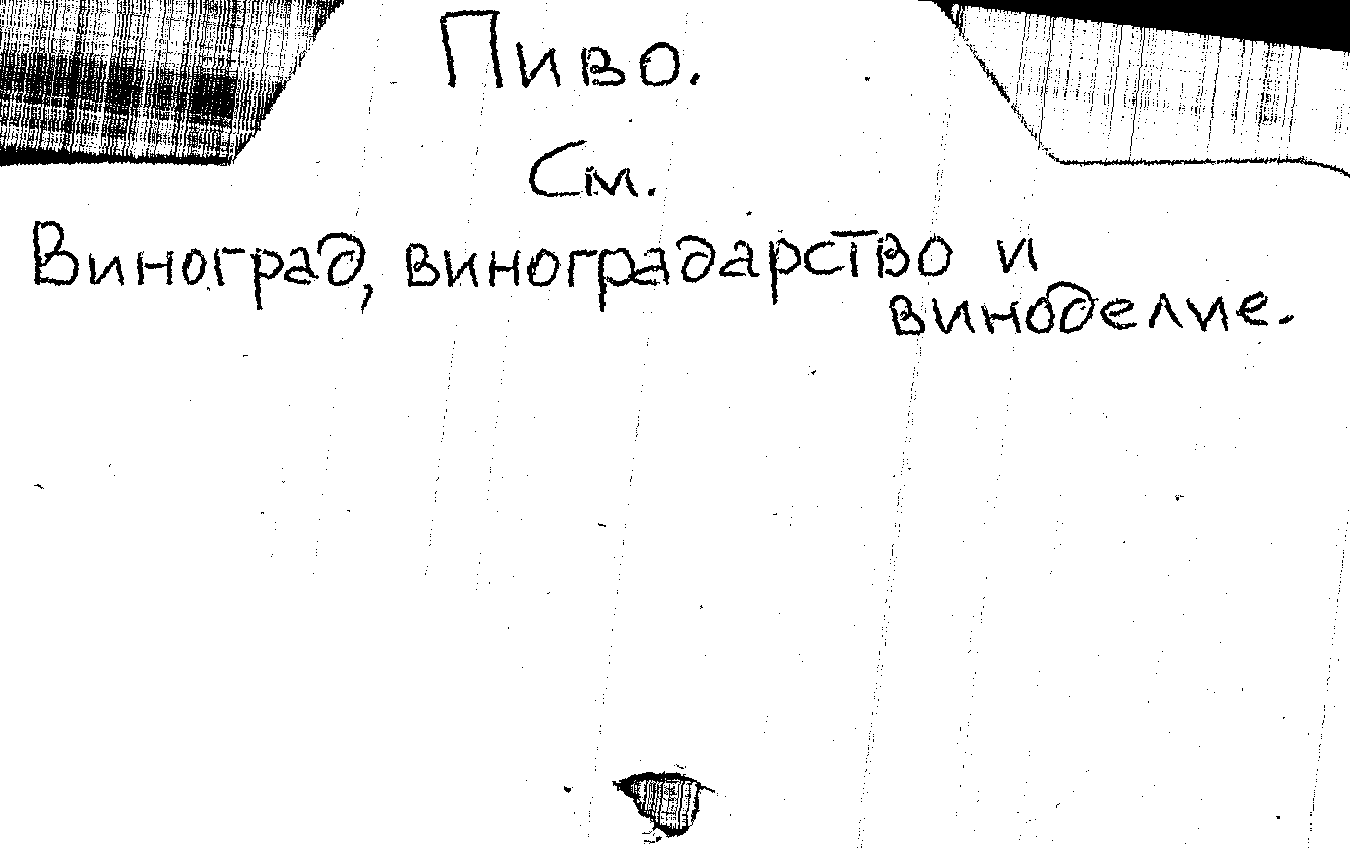 Пиво.
См.
Виноград, виноградарство и
виноделие.